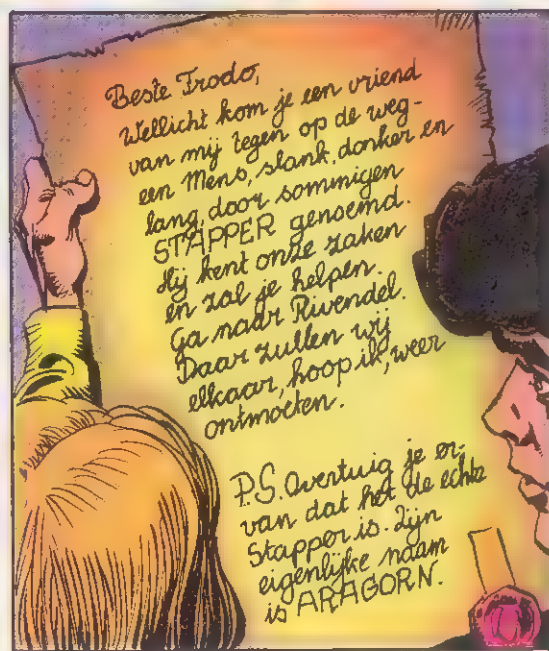 Beste Frodo,
Wellicht kom je een vriend
van mij tegen op de weg-
een Mens, slank, donker en
lang, door sommigen
STAPPER genoemd.
Hij kent onze zaken
en zal je helpen.
Ga naar Rivendel.
Daar zullen wij
elkaar, hoop ik, weer
ontmoeten.
P.S. Overtuig je er-
van dat het de echte
Stapper is. Zijn
eigenlijke naam
is ARAGORN.